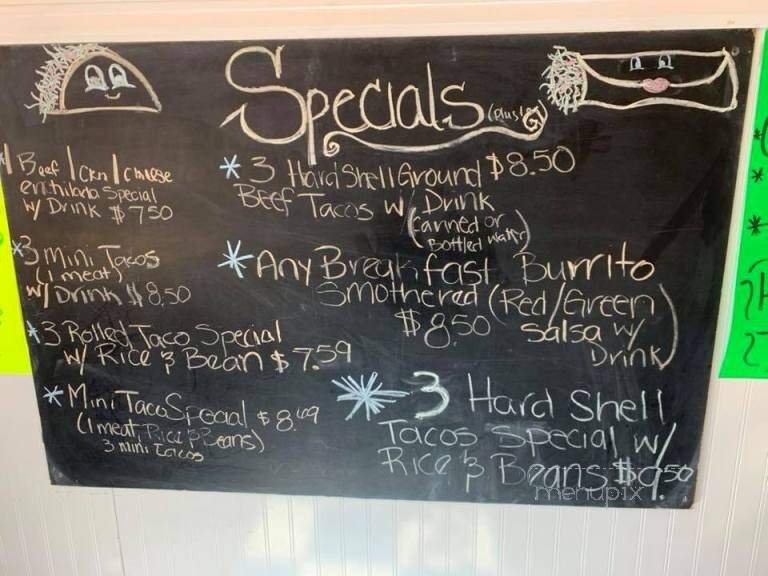 Specals (plus
* Beef / Ckn / Cheese
enchilada Special
w/ Drink $7.50
*3 mini Tacos
(1 meat)
w/ Drink $8.50
*3 Rolled Taco Special
w/ Rice & Bean $7.59
* Mini Taco Special $8.
(1 meat, Rice & Beans)
3 mini tacos
* 3 Hard Shell Ground $8.50
Beef Tacos w/ Drink
(canned or
Bottled water)
* Any Breakfast Burrito
Smothered (Red/Green
$8.50 Salsa w/
Drink)
* 3 Hard Shell
Tacos Special w/
Rice & Beans $9.50
menupix